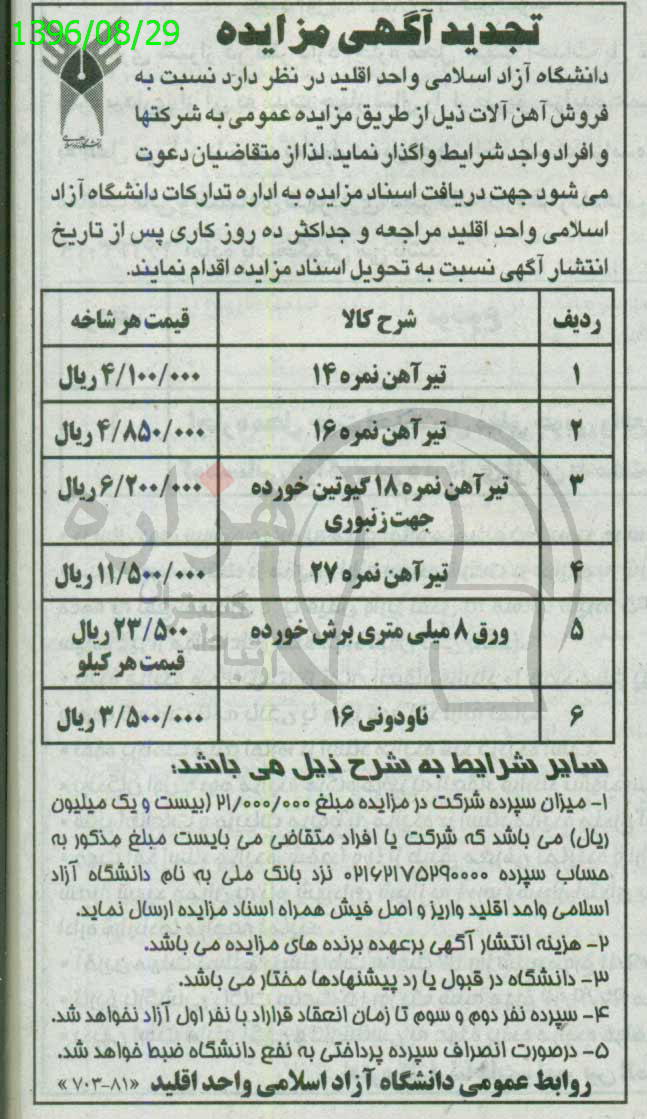 1396/08/29
تجدید آگهی مزایده
دانشگاه آزاد اسلامی واحد اقلید در نظر دارد نسبت به
فروش آهن آلات ذیل از طریق مزایده عمومی به شرکتها
و افراد واجد شرایط واگذار نماید. لذا از متقاضیان دعوت
می شود جهت دریافت اسناد مزایده به اداره تدارکات دانشگاه آزاد
اسلامی واحد اقلید مراجعه و جداکثر ده روز کاری پس از تاریخ
انتشار آگهی نسبت به تحویل اسناد مزایده اقدام نمایند.
ردیف شرح کالا قیمت هر شاخه
۱ تیرآهن نمره ۱۴ ۴/۱۰۰/۰۰۰ ریال
۲ تیرآهن نمره ۱۶ ۴/۸۵۰/۰۰۰ ریال
۳ تیرآهن نمره ۱۸ گیوتین خورده ۶/۲۰۰/۰۰۰ ریال
جهت زنبوری
۴ تیرآهن نمره ۲۷ ۱۱/۵۰۰/۰۰۰ ریال
۵ ورق ۸ میلی متری برش خورده ۲۳/۵۰۰ ریال
قیمت هر کیلو
۶ ناودونی ۱۶ ۳/۵۰۰/۰۰۰ ریال
سایر شرایط به شرح ذیل می باشد:
۱- میزان سپرده شرکت در مزایده مبلغ ۲۱/۰۰۰/۰۰۰ (بیست و یک میلیون
ریال) می باشد که شرکت یا افراد متقاضی می بایست مبلغ مذکور به
حساب سپرده ۰۲۱۶۲۱۷۵۲۹۰۰۰۰ نزد بانک ملی به نام دانشگاه آزاد
اسلامی واحد اقلید واریز و اصل فیش همراه اسناد مزایده ارسال نماید.
۲- هزینه انتشار آگهی برعهده برنده های مزایده می باشد.
۳- دانشگاه در قبول یا رد پیشنهادها مختار می باشد.
۴- سپرده نفر دوم و سوم تا زمان انعقاد قراراد با نفر اول آزاد نخواهد شد.
۵- درصورت انصراف سپرده پرداختی به نفع دانشگاه ضبط خواهد شد.
روابط عمومی دانشگاه آزاد اسلامی واحد اقلید «۸۱-۷۰۳»
هزاره